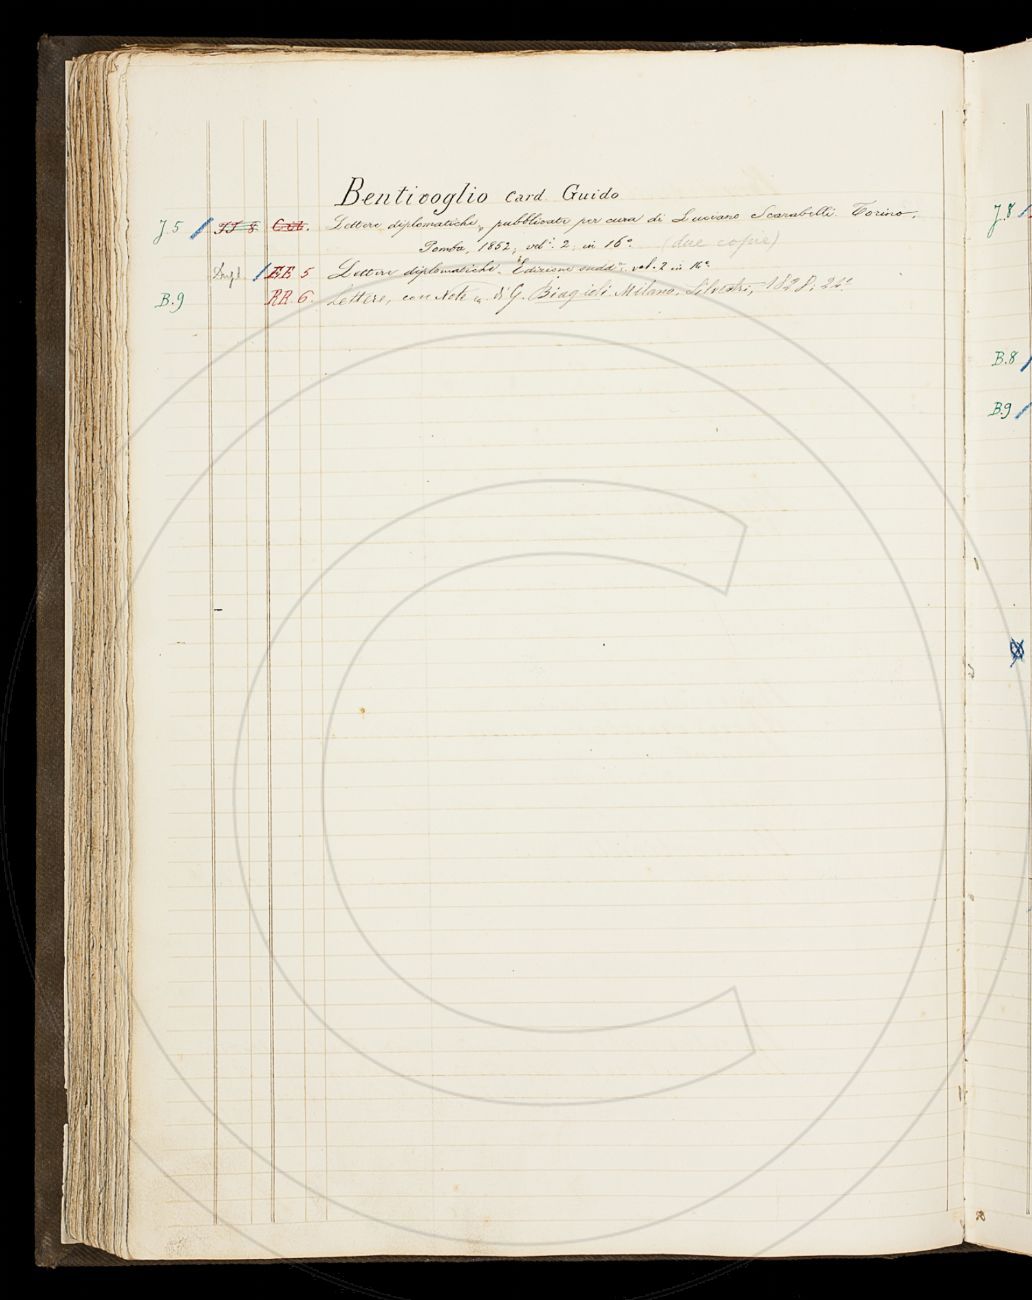 Bentivoglio Card. Guido
J.5 II 8 Cat. Lettere diplomatiche, pubblicate per cura di Luciano Scarabelli. Torino,
Pomba, 1852, vol.i 2, in 16º (due copie)
Dupl. EE 5 Lettere diplomatiche. Edizione sudd.a vol. 2 in 16º
B.9 RR. 6. Lettere, con Note di G. Biagioli. Milano, Silvestri, 1828,
J.8
B.8
B.9